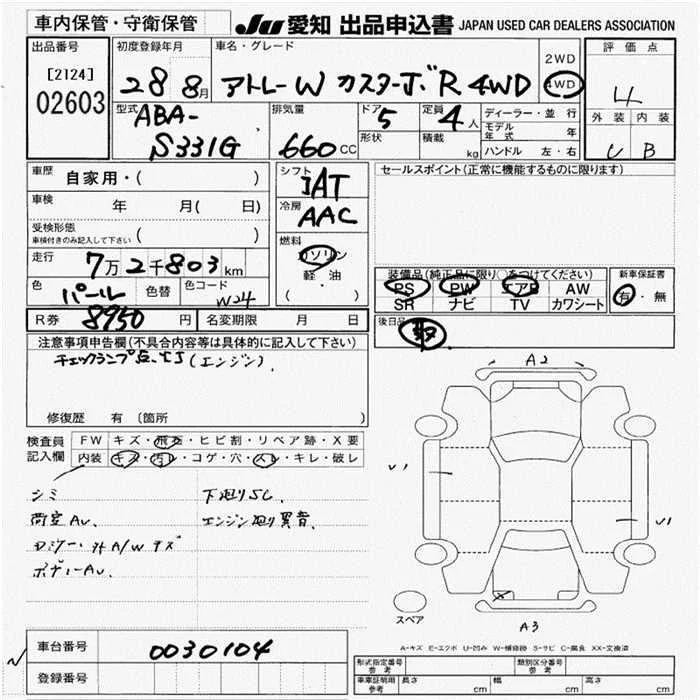 車内保管・守衛保管
JU 愛知 出品申込書 JAPAN USED CAR DEALERS ASSOCIATION
出品番号
[2124]
02603
初度登録年月
28 8月
車名・グレード
アトレーW カスターボR 4WD
2WD
4WD
評価点
4
外装 内装
C B
型式
ABA-
S331G
排気量
660 CC
ドア 5
形状
定員 4人
積載 kg
ディーラー・並行
モデル年式 年
ハンドル 左・右
車歴 自家用・( )
車検 年 月( 日)
受検形態
車検付きのみ記入して下さい ( )
走行 7万2千803km
色 パール 色替 色コード W24
R券 8950円 名変期限 月 日
シフト
IAT
冷房
AAC
燃料
ガソリン
軽・油
( ・ )
セールスポイント(正常に機能するものに限ります)
装備品(純正品に限り○をつけてください)
PS PW エアB AW
SR ナビ TV カワシート
新車保証書
有・無
後日品
取
注意事項申告欄(不具合内容等は具体的に記入して下さい)
チェックランプ点灯(エンジン).
修復歴 有 〔箇所 〕
検査員記入欄
FW キズ・飛石・ヒビ割・リペア跡・X要
内装 キズ・汚レ・コゲ・穴・スレ・キレ・破レ
シミ
荷室AU.
外A/Wキズ
ボディーAU.
下廻りSC.
エンジン廻り異音.
A2
U1
U1
A3
スペア
A-キズ E-エクボ U-凹み W-補修跡 S-サビ C-腐食 XX-交換済
車台番号 0030104
登録番号
形式指定番号参考
類別区分番号参考
車庫証明用参考 長さ cm 幅 cm 高さ cm